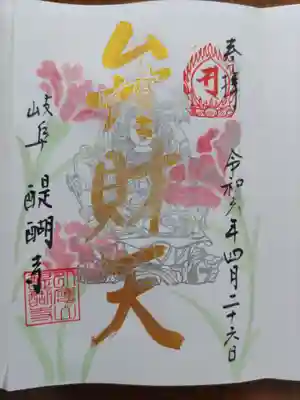 奉拝
令和六年四月二十六日
弁財天
岐阜
醍醐寺